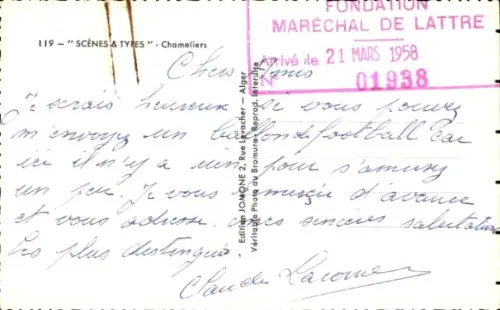 FONDATION
MARÉCHAL DE LATTRE
Arrivé le 21 MARS 1958
N° 01938
119 - "SCÈNES & TYPES" - Chameliers
Chers Amis
Je serais heureux si vous pouvez
m'envoyez un ballon de football Car
ici il n'y a rien pour s'amuser
un peu. Je vous remercie d'avance
et vous adresse mes sincères salutations
les plus distingués.
Claude
Edition JOMONE 2, Rue Levacher - Alger
Véritable Photo du Bromure - Reprod. Interdite